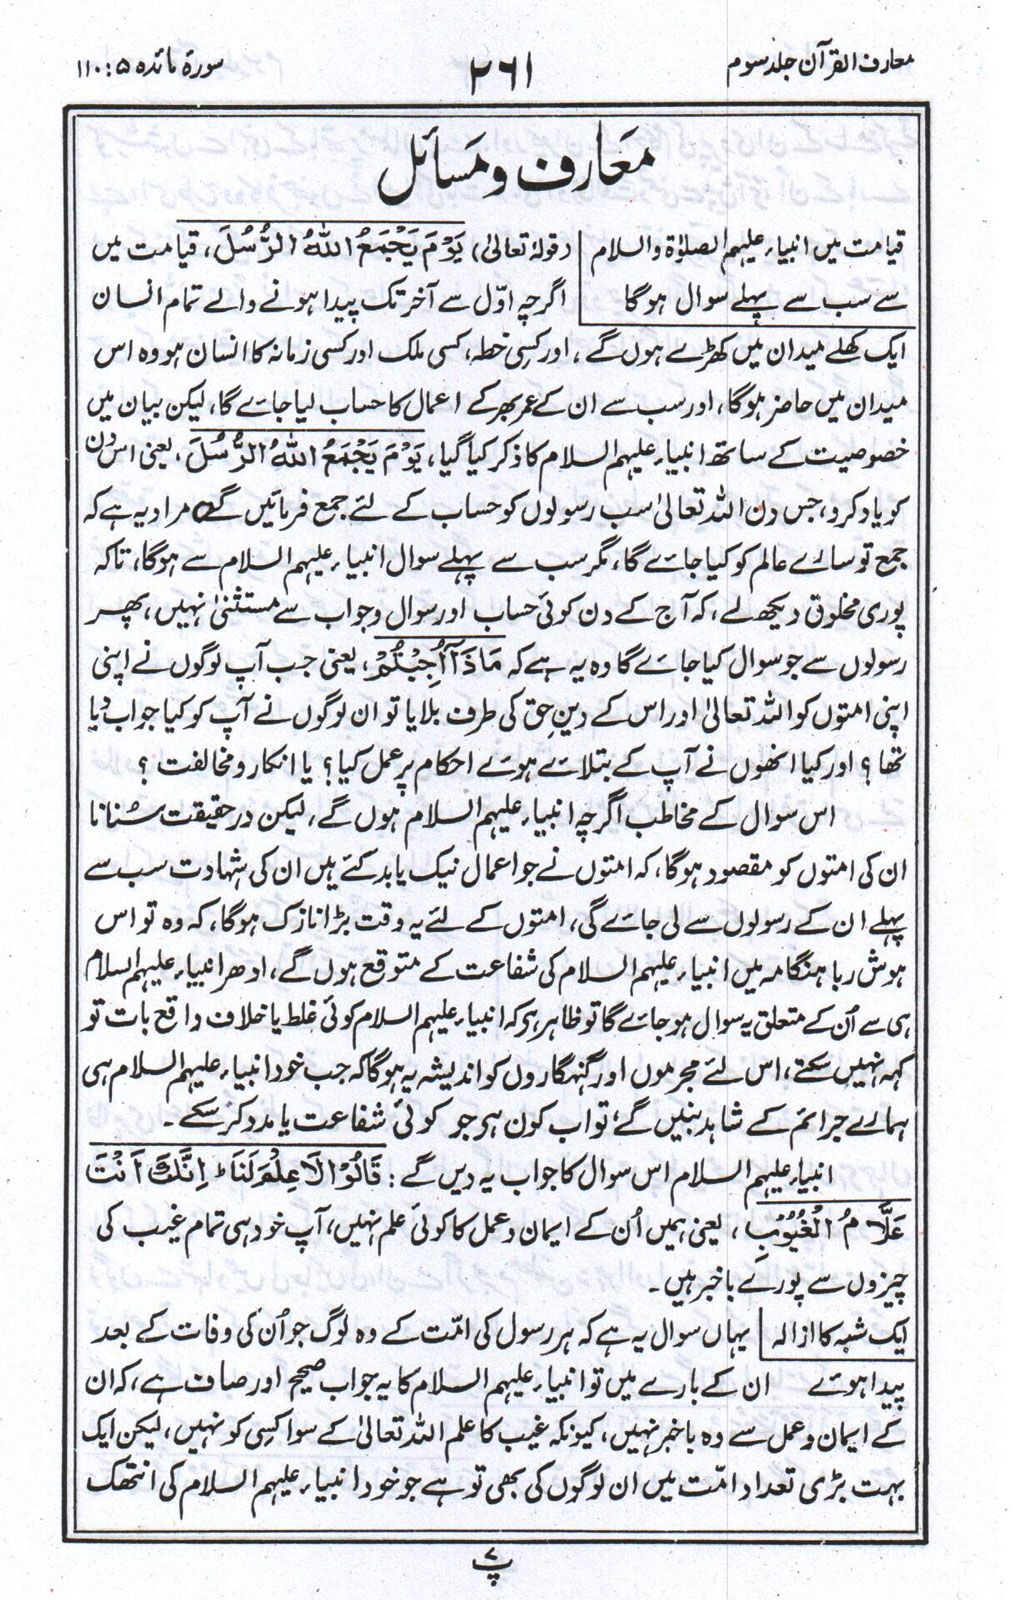 معارف القرآن جلد سوم
۲۶۱
سورۂ مائدہ ۵ : ۱۱۰
معارف و مسائل
قیامت میں انبیاء علیہم الصلوٰۃ والسلام
سے سب سے پہلے سوال ہوگا
(قولہٗ تعالیٰ) یَوْمَ یَجْمَعُ اللّٰہُ الرُّسُلَ، قیامت میں
اگرچہ اوّل سے آخر تک پیدا ہونے والے تمام انسان
ایک کھلے میدان میں کھڑے ہوں گے، اور کسی خطہ، کسی ملک اور کسی زمانہ کا انسان ہو وہ اس
میدان میں حاضر ہوگا، اور سب سے ان کے عمر بھر کے اعمال کا حساب لیا جائے گا، لیکن بیان میں
خصوصیت کے ساتھ انبیاء علیہم السلام کا ذکر کیا گیا، یَوْمَ یَجْمَعُ اللّٰہُ الرُّسُلَ، یعنی اس دن
کو یاد کرو، جس دن اللہ تعالیٰ سب رسولوں کو حساب کے لئے جمع فرمائیں گے مراد یہ ہے کہ
جمع تو سارے عالم کو کیا جائے گا، مگر سب سے پہلے سوال انبیاء علیہم السلام سے ہوگا، تاکہ
پوری مخلوق دیکھ لے، کہ آج کے دن کوئی حساب اور سوال و جواب سے مستثنیٰ نہیں، پھر
رسولوں سے جو سوال کیا جائے گا وہ یہ ہے کہ مَاذَآ اُجِبْتُمْ، یعنی جب آپ لوگوں نے اپنی
اپنی امتوں کو اللہ تعالیٰ اور اس کے دینِ حق کی طرف بلایا تو ان لوگوں نے آپ کو کیا جواب دیا
تھا؟ اور کیا انھوں نے آپ کے بتلائے ہوئے احکام پر عمل کیا؟ یا انکار و مخالفت؟
اس سوال کے مخاطب اگرچہ انبیاء علیہم السلام ہوں گے، لیکن درحقیقت سُنانا
ان کی امتوں کو مقصود ہوگا، کہ امتوں نے جو اعمال نیک یا بد کئے ہیں ان کی شہادت سب سے
پہلے ان کے رسولوں سے لی جائے گی، امتوں کے لئے یہ وقت بڑا نازک ہوگا، کہ وہ تو اس
ہوش ربا ہنگامہ میں انبیاء علیہم السلام کی شفاعت کے متوقع ہوں گے، ادھر انبیاء علیہم السلام
ہی سے اُن کے متعلق یہ سوال ہو جائے گا تو ظاہر ہے کہ انبیاء علیہم السلام کوئی غلط یا خلاف واقع بات تو
کہہ نہیں سکتے، اس لئے مجرموں اور گنہگاروں کو اندیشہ یہ ہوگا کہ جب خود انبیاء علیہم السلام ہی
ہمارے جرائم کے شاہد بنیں گے، تو اب کون ہے جو کوئی شفاعت یا مدد کر سکے۔
انبیاء علیہم السلام اس سوال کا جواب یہ دیں گے: قَالُوْا لَا عِلْمَ لَنَا ؕ اِنَّکَ اَنْتَ
عَلَّامُ الْغُیُوْبِ، یعنی ہمیں اُن کے ایمان و عمل کا کوئی علم نہیں، آپ خود ہی تمام غیب کی
چیزوں سے پورے باخبر ہیں۔
ایک شبہ کا ازالہ
یہاں سوال یہ ہے کہ ہر رسول کی امّت کے وہ لوگ جو اُن کی وفات کے بعد
پیدا ہوئے ان کے بارے میں تو انبیاء علیہم السلام کا یہ جواب صحیح اور صاف ہے، کہ ان
کے ایمان و عمل سے وہ باخبر نہیں، کیونکہ غیب کا علم اللہ تعالیٰ کے سوا کسی کو نہیں، لیکن ایک
بہت بڑی تعداد امّت میں ان لوگوں کی بھی تو ہے جو خود انبیاء علیہم السلام کی انتھک